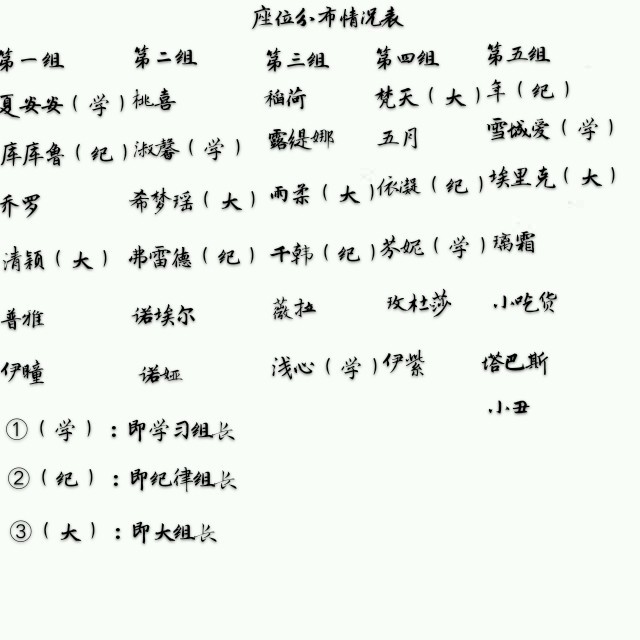 座位分布情况表
第一组 第二组 第三组 第四组 第五组
夏安安（学） 桃喜 稻荷 梵天（大） 年（纪）
库库鲁（纪） 淑馨（学） 露缇娜 五月 雪城爱（学）
乔罗 希梦瑶（大） 雨柔（大） 依凝（纪） 埃里克（大）
清颖（大） 弗雷德（纪） 千韩（纪） 芬妮（学） 璃霜
普雅 诺埃尔 薇拉 玫杜莎 小吃货
伊瞳 诺娅 浅心（学） 伊紫 塔巴斯
小丑
①（学）：即学习组长
②（纪）：即纪律组长
③（大）：即大组长